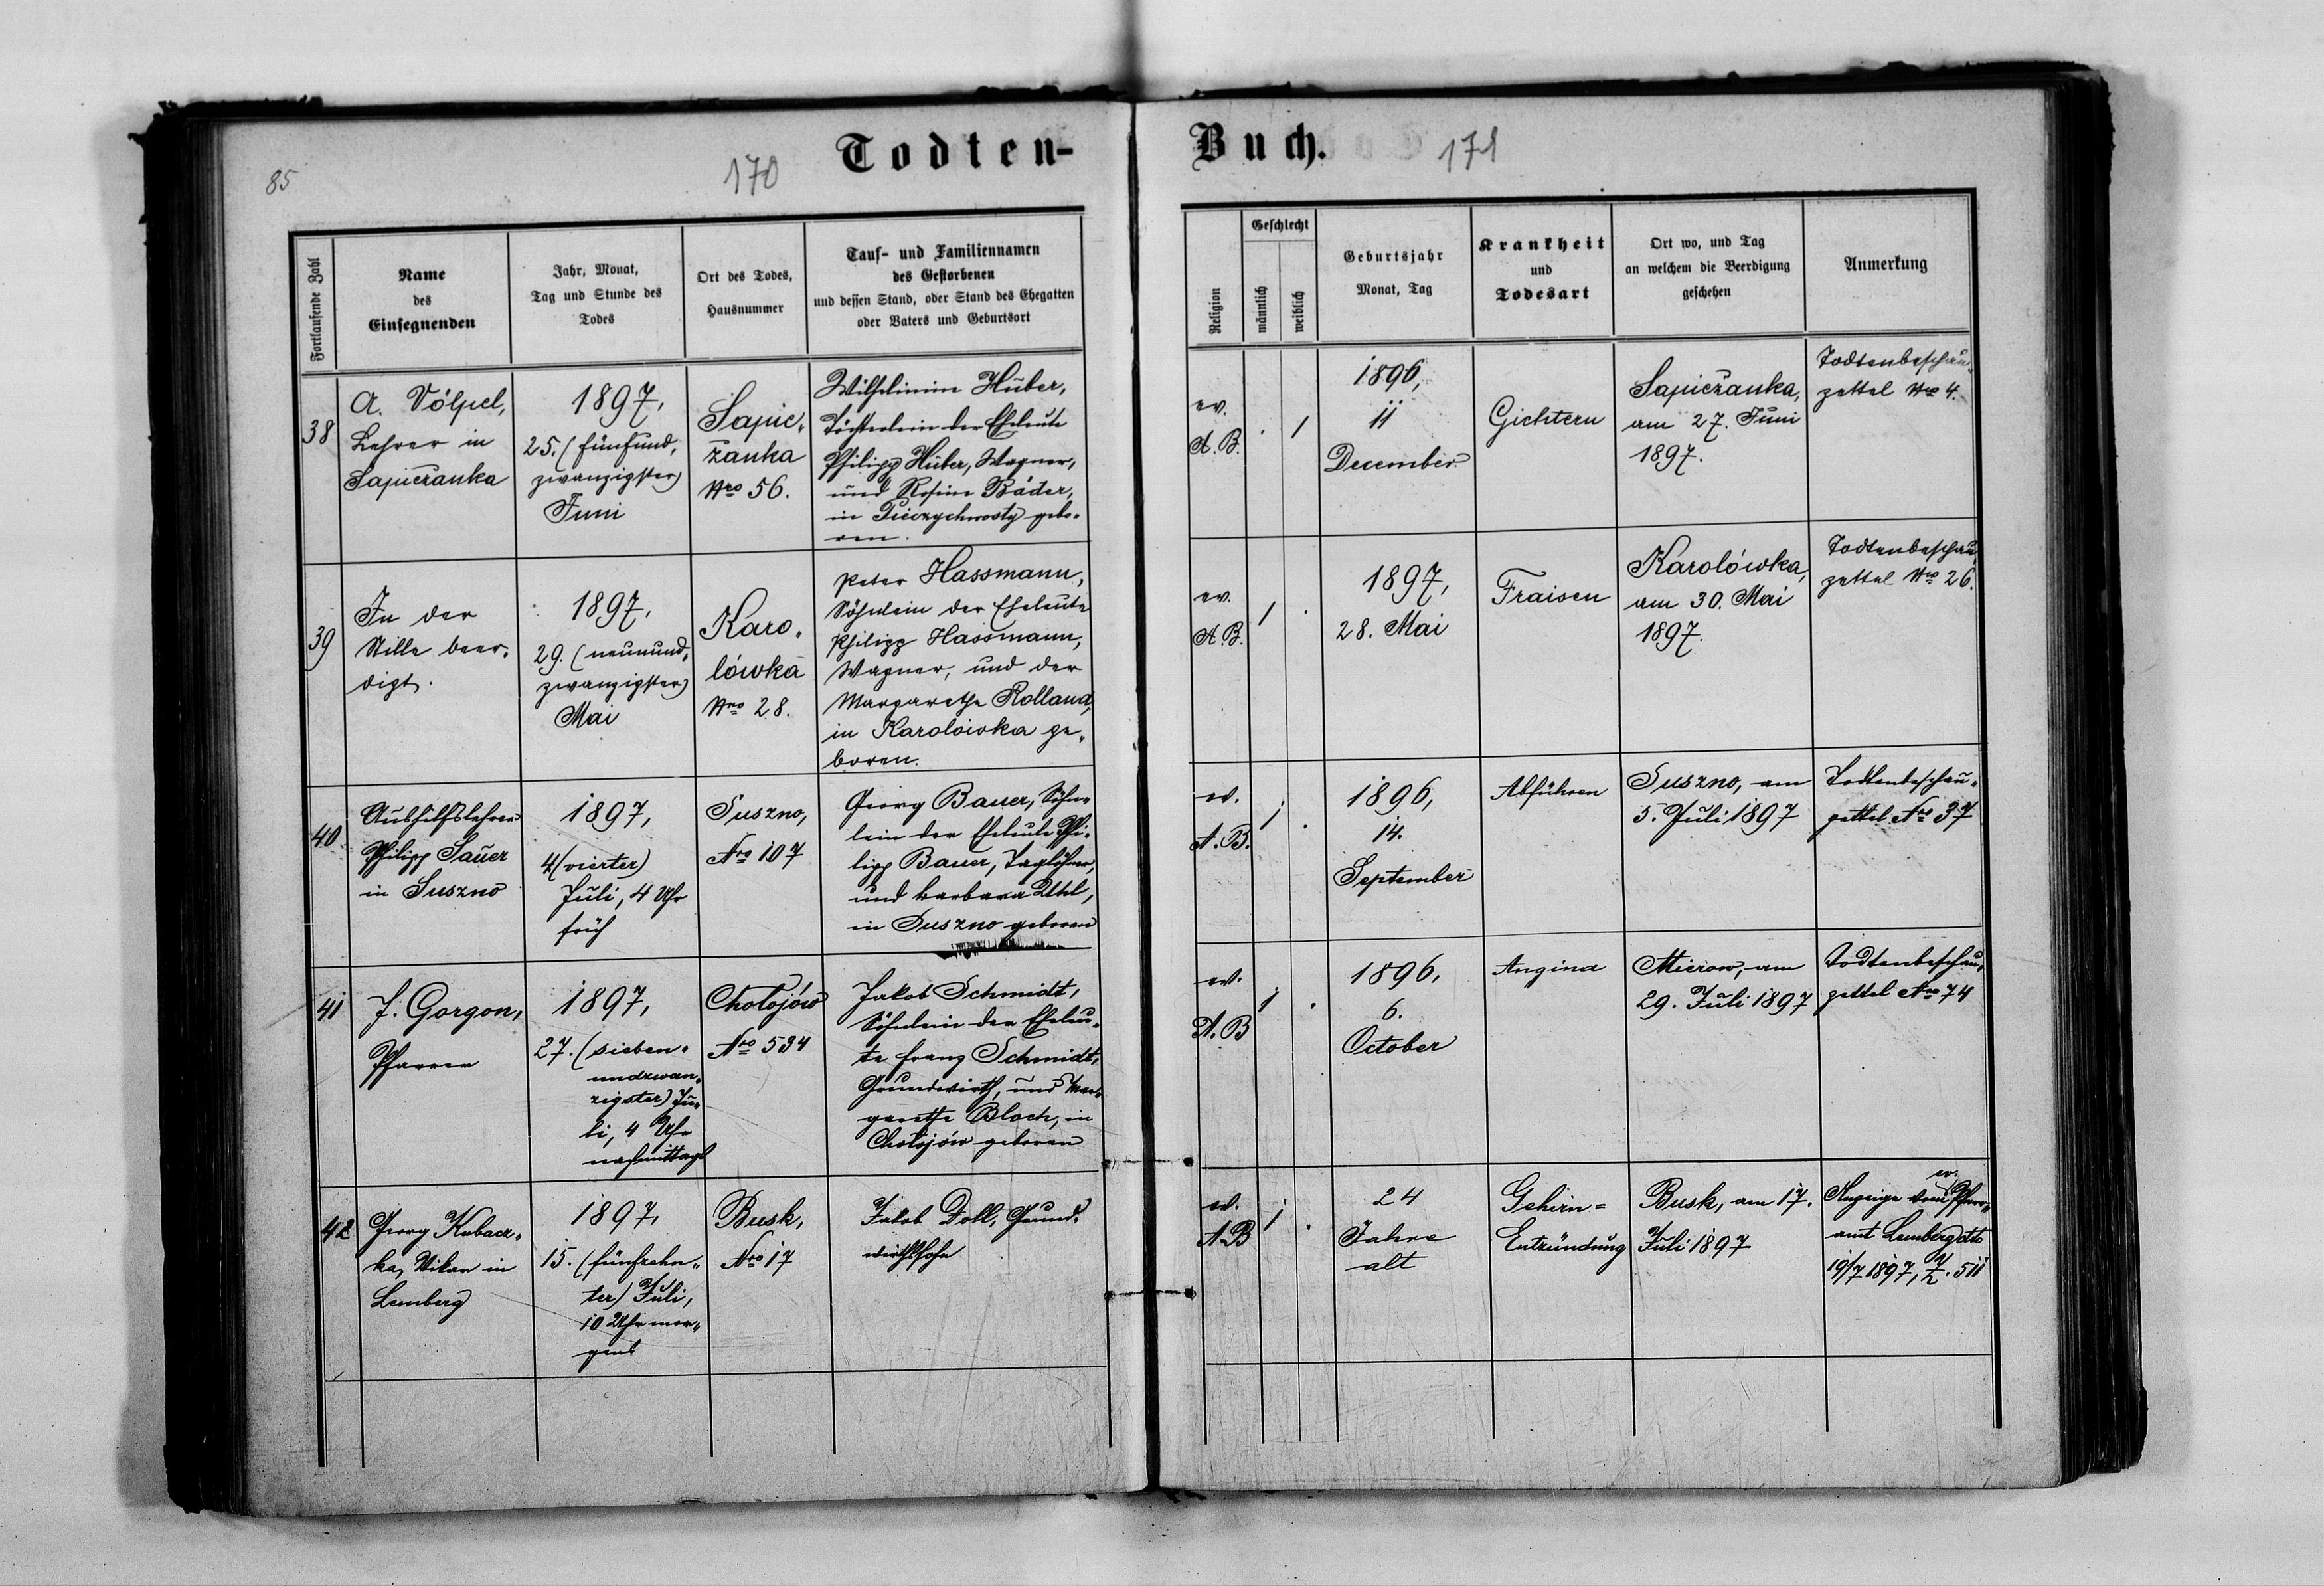 85
170
Todten-
Fortlaufende Zahl
Name
des
Einsegnenden
Jahr, Monat,
Tag und Stunde des
Todes
Ort des Todes,
Hausnummer
Tauf- und Familiennamen
des Gestorbenen
und dessen Stand, oder Stand des Ehegatten
oder Vaters und Geburtsort
38
A. Völpel,
Lehrer in
Sapieżanka
1897,
25. (fünfund„
zwanzigster)
Juni
Sapie„
żanka
Nro 56.
Wilhelmine Huber,
Töchterlein der Eheleute
Philipp Huber, Wagner,
und Rosine Bäder,
in Pieczychwosty gebo„
ren.
39
In der
Stille beer„
digt.
1897,
29. (neunund„
zwanzigster)
Mai
Karo„
lówka
Nro 28.
Peter Hassmann,
Söhnlein der Eheleute
Philipp Hassmann,
Wagner, und der
Margarethe Rolland,
in Karolówka ge„
boren.
40
Aushilfslehrer
Philipp Sauer
in Suszno
1897,
4 (vierter)
Juli, 4 Uhr
früh
Suszno,
Nro 107
Georg Bauer, Söhn„
lein der Eheleute Phi„
lipp Bauer, Taglöhner,
und Barbara Uhl,
in Suszno geboren
41
J. Gorgon,
Pfarrer
1897,
27. (sieben„
undzwan„
zigster) Ju„
li, 4 Uhr
nachmittags
Chołojów
Nro 534
Jakob Schmidt,
Söhnlein der Eheleu„
te Franz Schmidt,
Grundwirth, und Mar„
garethe Bloch, in
Chołojów geboren
42
Georg Kubacz„
ka, Vikar in
Lemberg
1897,
15. (fünfzehn„
ter) Juli,
10 Uhr mor„
gens
Busk,
Nro 17
Jakob Doll, Grund„
wirthssohn
Buch.
171
Religion
Geschlecht
männlich
weiblich
Geburtsjahr
Monat, Tag
Krankheit
und
Todesart
Ort wo, und Tag
an welchem die Beerdigung
geschehen
Anmerkung
ev.
A. B.
. 1
1896,
11
December
Gichtern
Sapieżanka,
am 27. Juni
1897.
Todtenbeschau„
zettel Nro 4.
ev.
A. B.
1 .
1897,
28. Mai
Fraisen
Karolówka,
am 30. Mai
1897.
Todtenbeschau„
zettel Nro 26.
ev.
A. B.
1 .
1896,
14.
September
Abführen
Suszno, am
5. Juli 1897
Todtenbeschau„
zettel Nro 37
ev.
A. B
1 .
1896,
6.
October
Angina
Mierow, am
29. Juli 1897
Todtenbeschau„
zettel Nro 74
ev.
A B
1 .
24
Jahre
alt
Gehirn=
Entzündung
Busk, am 17.
Juli 1897
ev.
Anzeige vom Pfarr„
amt Lemberg dto
19/7 1897, Z. 511